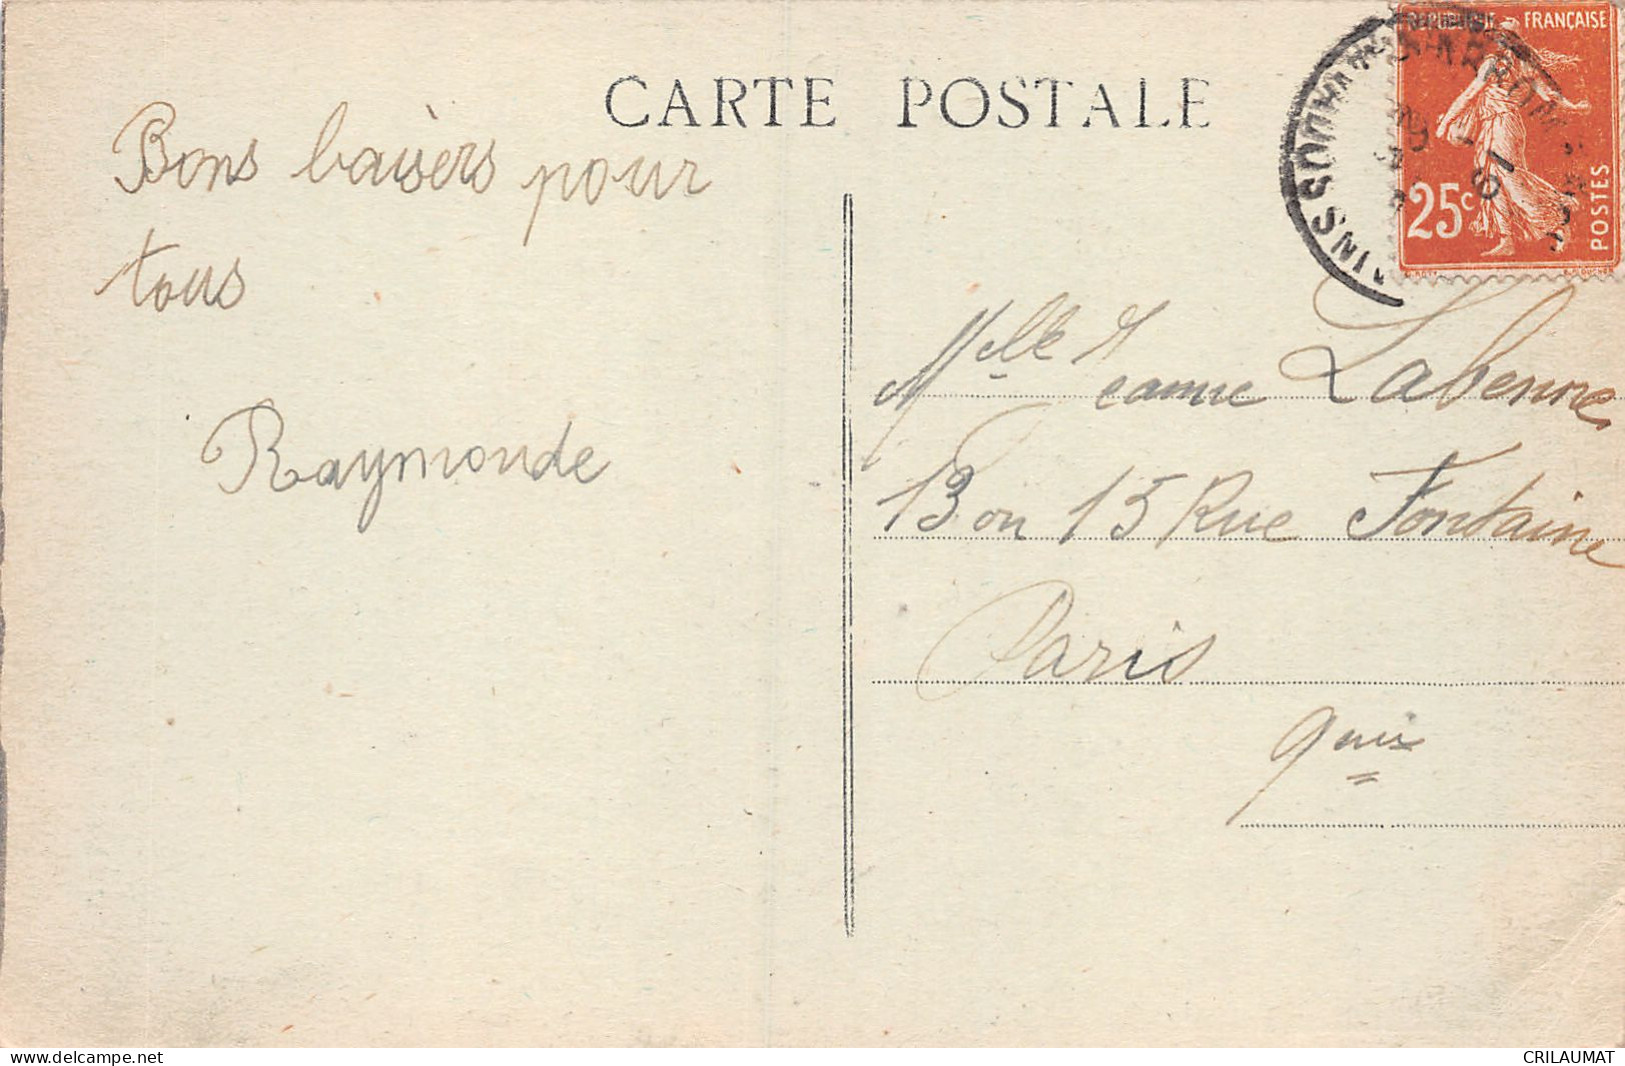 CARTE POSTALE
Bons baisers pour
tous
Raymonde
RÉPUBLIQUE FRANÇAISE
25c
POSTES
Mlle Jeanne Labenne
13 ou 15 Rue Fontaine
Paris
9me
www.delcampe.net
CRILAUMAT